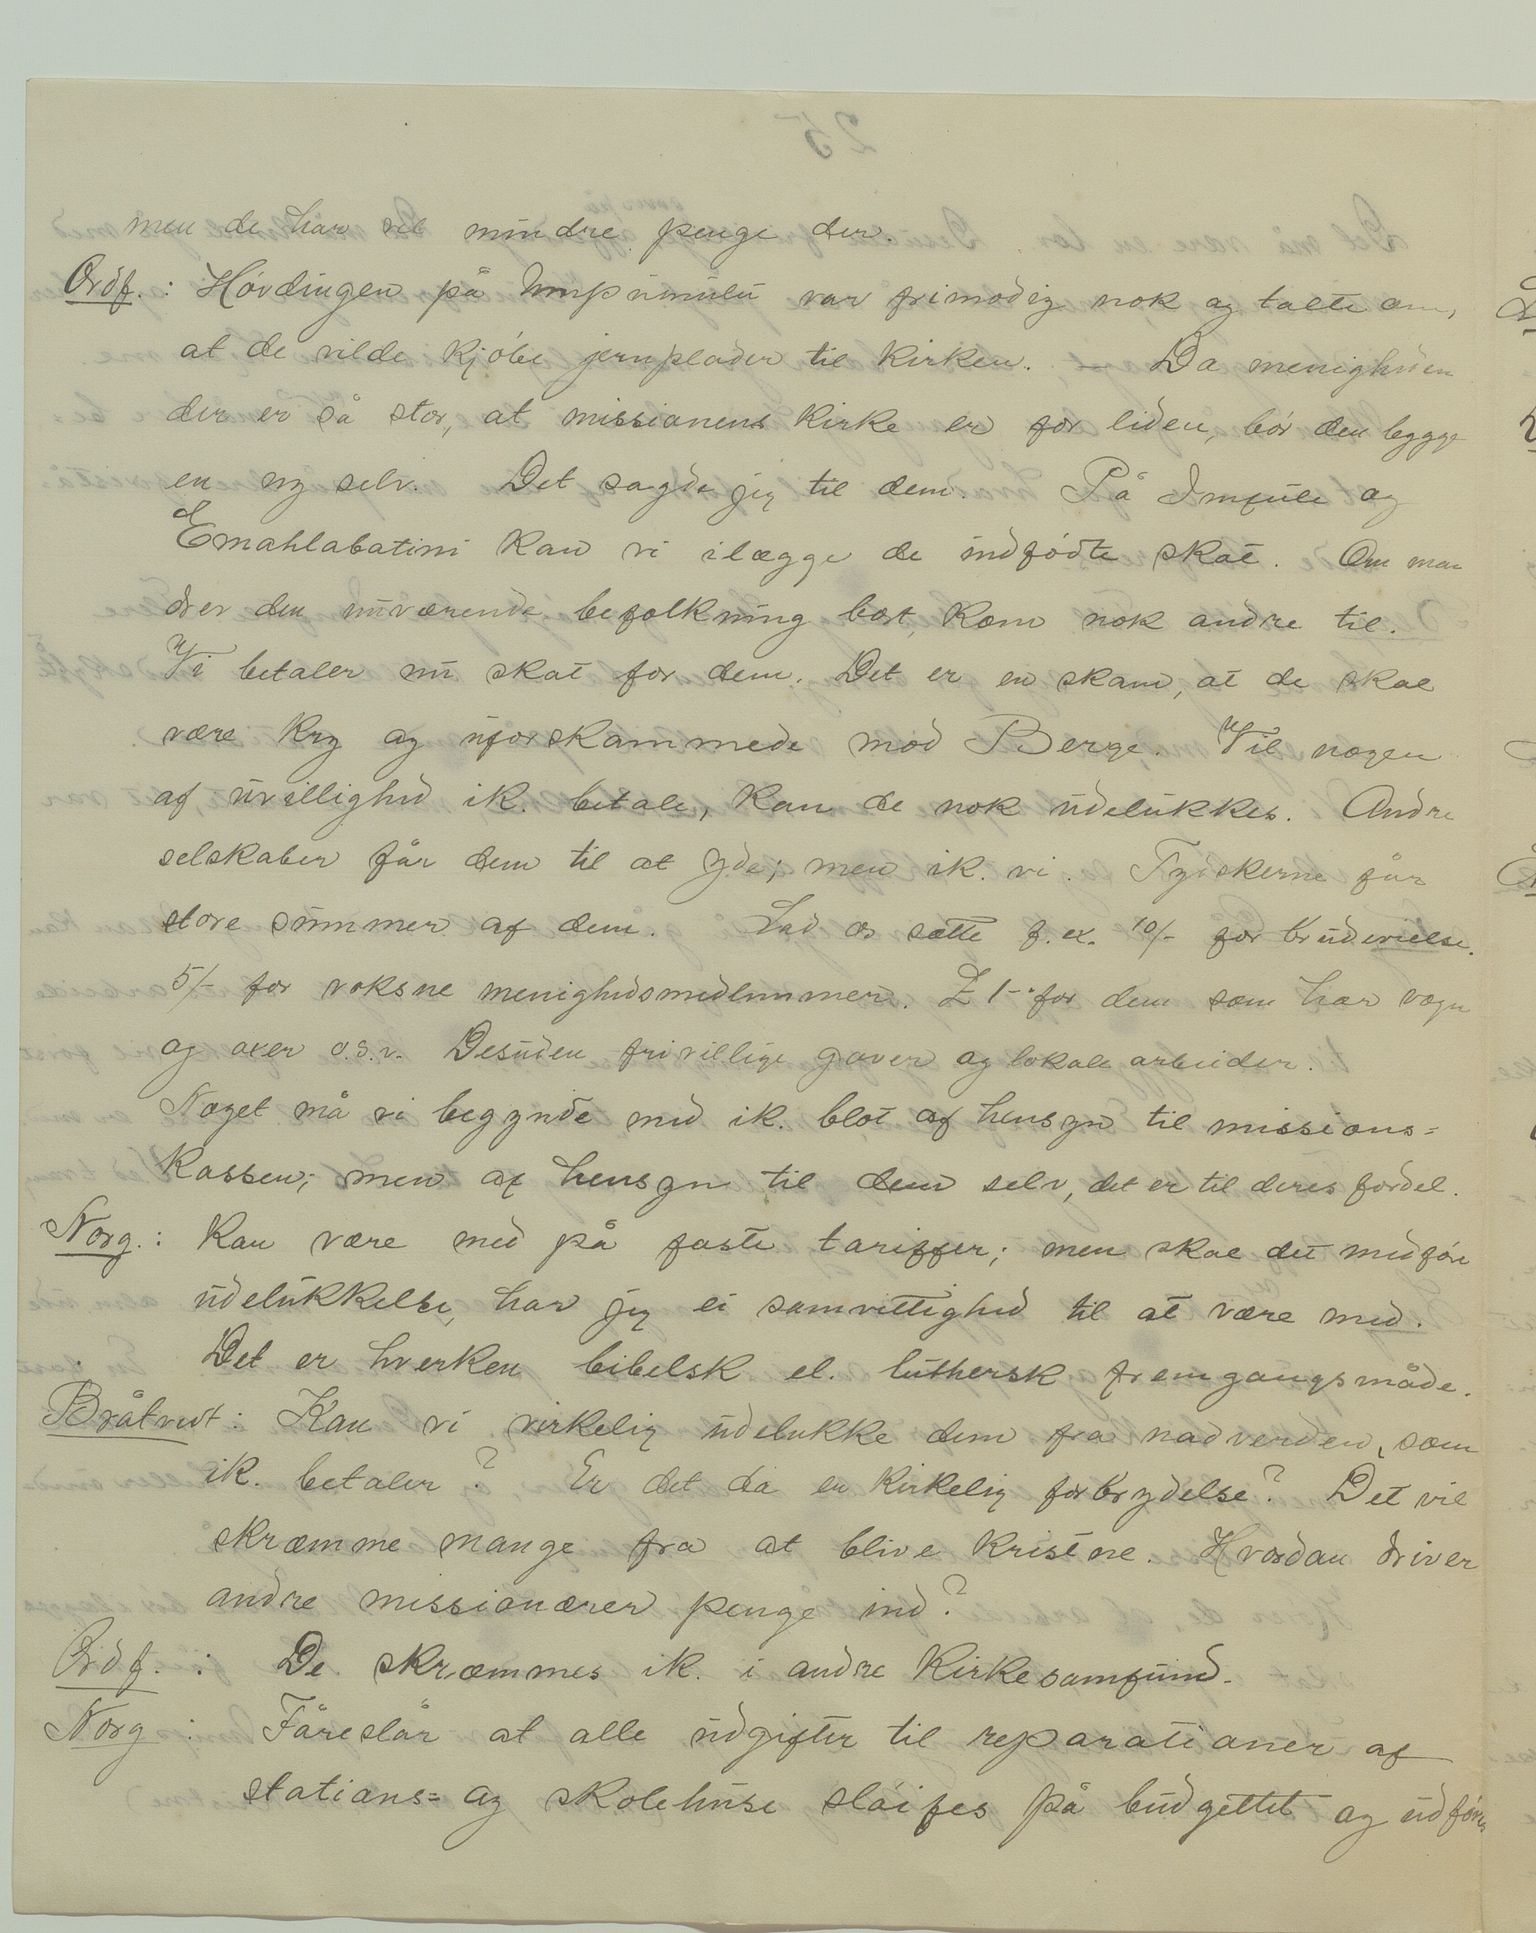 men de har vel mindre penge der.
Ordf.: Høvdingen på Umpumulu var frimodig nok og talte om,
at de vilde kjøbe jernplader til kirken. — Da menigheden
der er så stor, at missionens kirke er for liden, bør den bygge
en ny selv. Det sagde jeg til dem. På Imfule og
Emahlabatini kan vi ilægge de indfødte skat. Om man
drev den nuværende befolkning bort, kom nok andre til.
Vi betaler nu skat for dem. Det er en skam, at de skal
være kry og uforskammede mod Berge. Vil nogen
af uvillighed ik. betale, kan de nok udelukkes. Andre
selskaber får dem til at yde; men ik. vi. Tyskerne får
store summer af dem. Lad os sætte f. ex. 10/- for brudevielse.
5/- for voksne menighedsmedlemmer. £ 1-- for dem som har vogn
og oxer o.s.v. Desuden frivillige gaver og lokale arbeider.
Noget må vi begynde med ik. blot af hensyn til missions=
kassen; men af hensyn til dem selv, det er til deres fordel.
Norg.: Kan være med på faste tariffer; men skal det medføre
udelukkelse, har jeg ei samvittighed til at være med.
Det er hverken bibelsk el. luthersk fremgangsmåde.
Bråtvedt: Kan vi virkelig udelukke dem fra nadverden, som
ik. betaler? Er det da en kirkelig forbrydelse? Det vil
skræmme mange fra at blive kristne. Hvordan driver
andre missionærer penge ind?
Ordf.: De skræmmes ik. i andre kirkesamfund.
Norg: Fåreslår at alle udgifter til reparationer af
stations= og skolehuse sløifes på budgettet og udføres